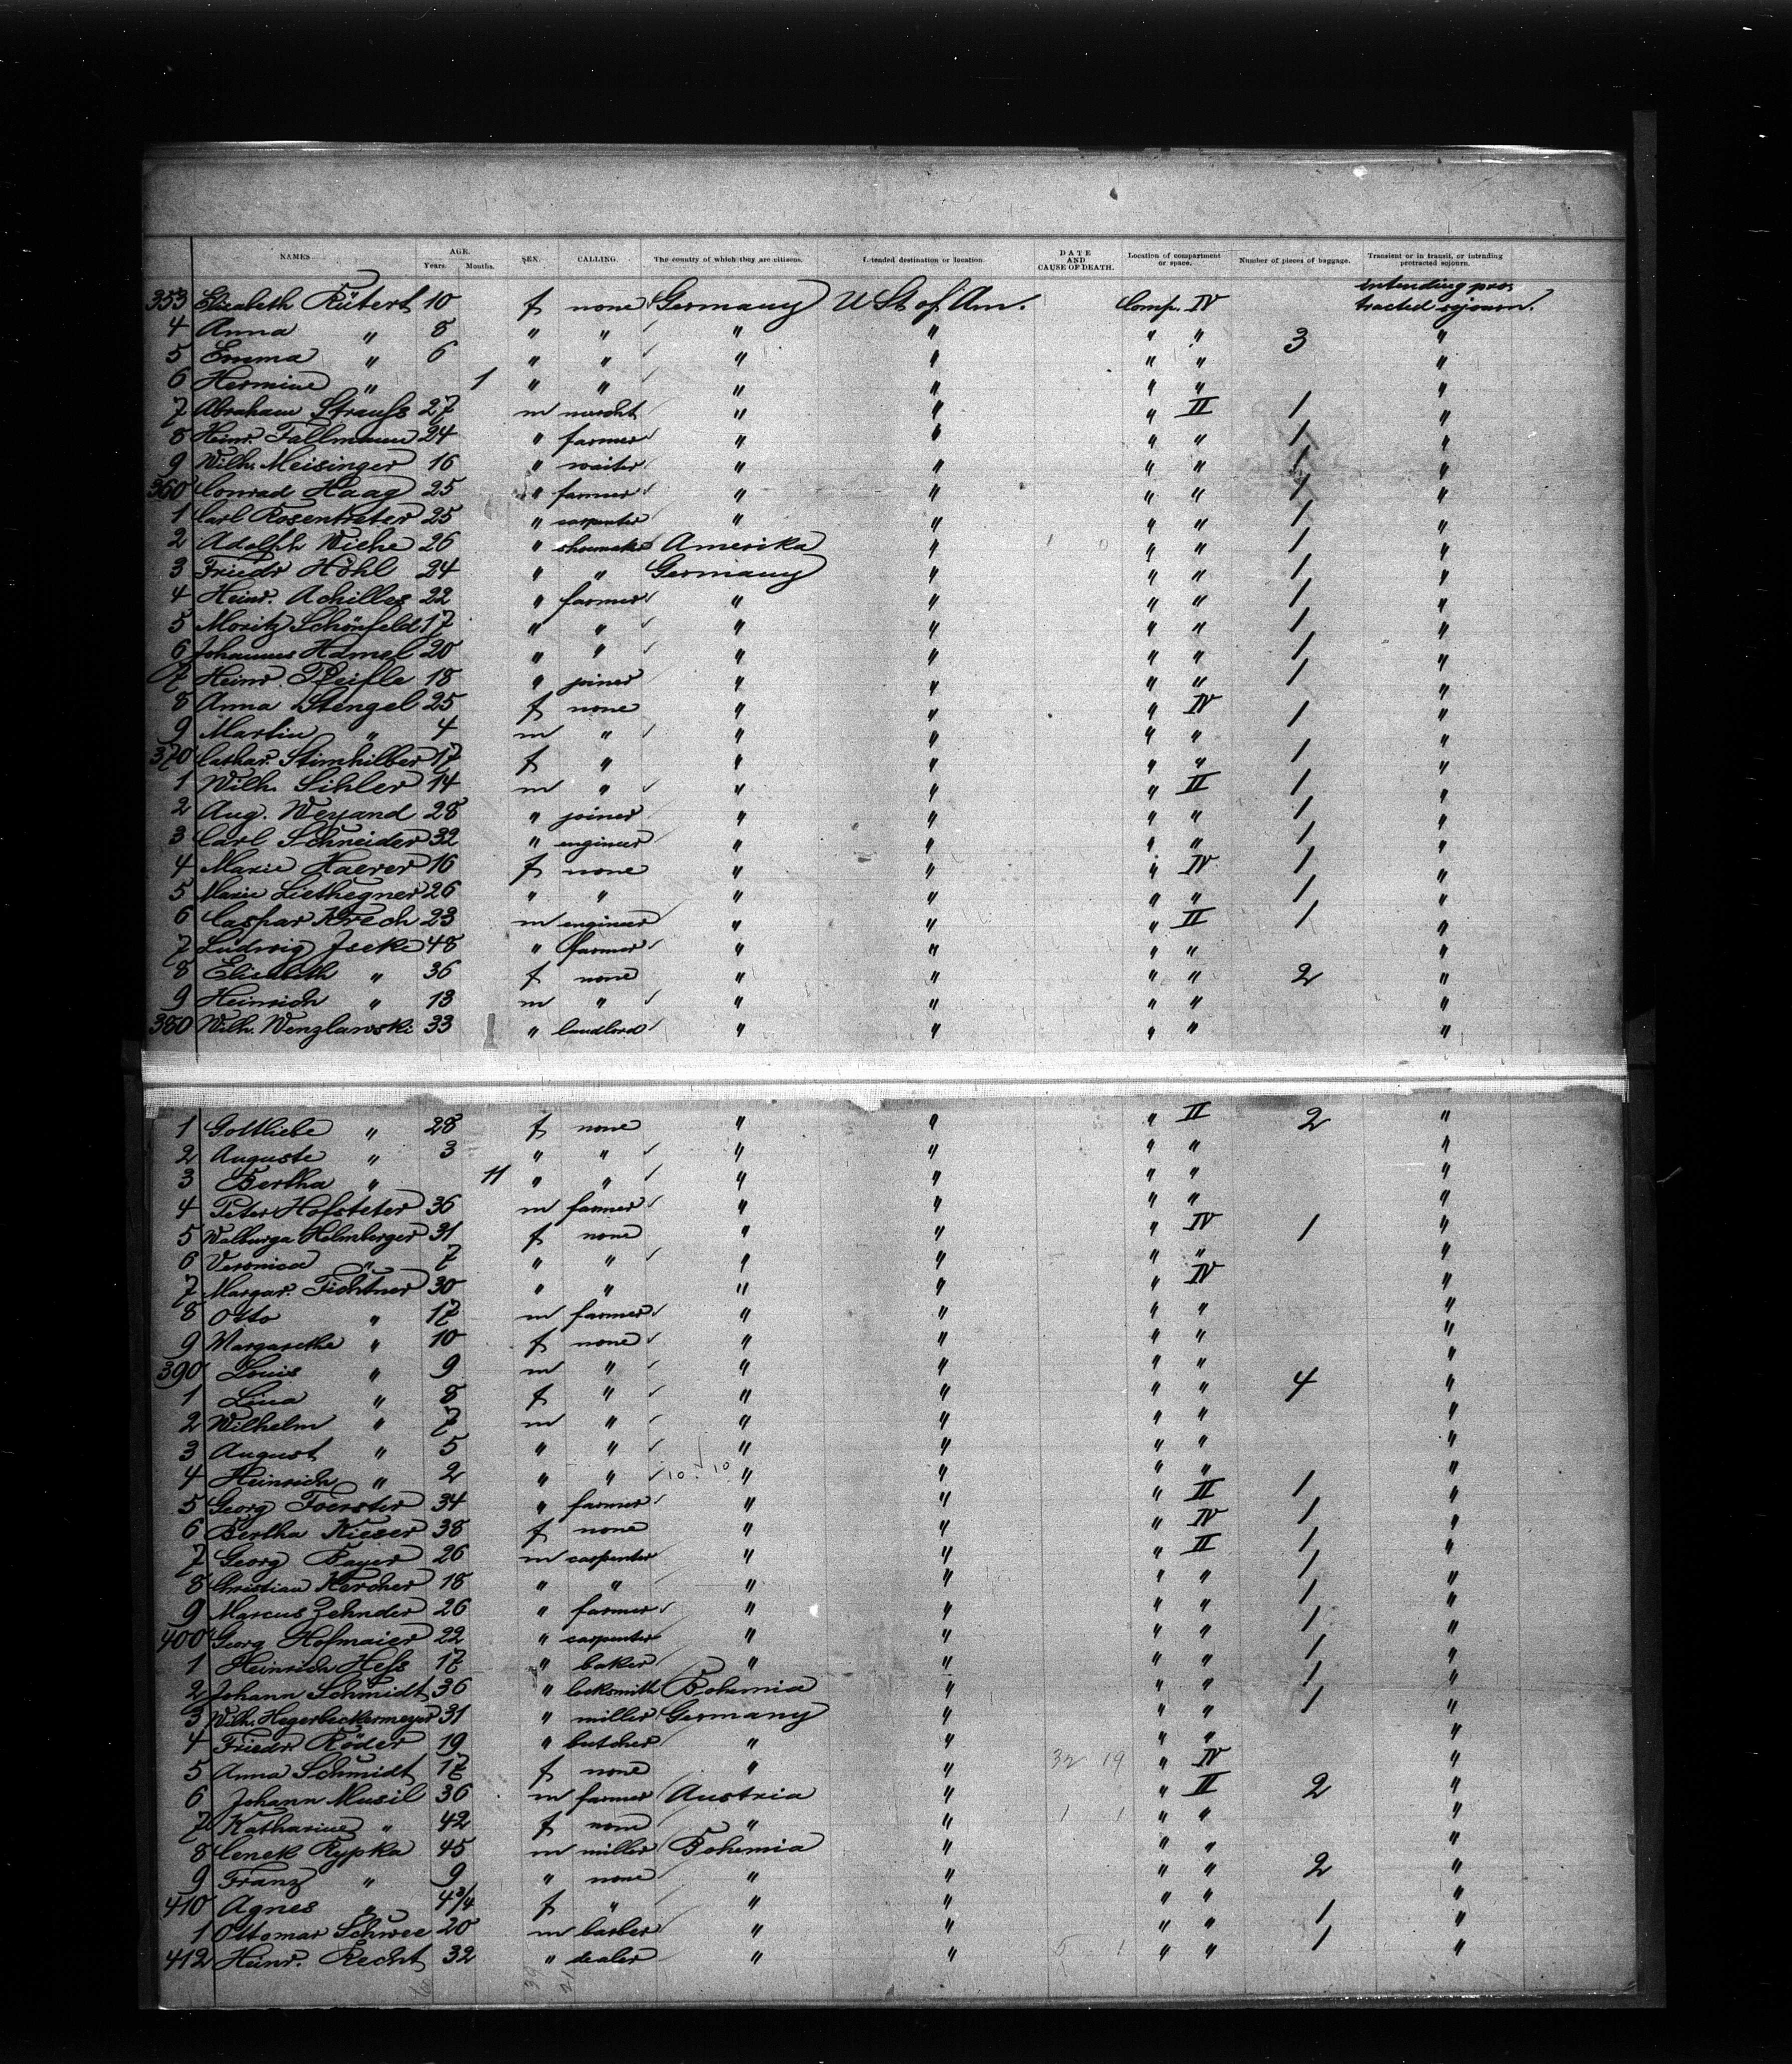 NAMES. AGE. Years. Months. SEX. CALLING. The country of which they are citizens. Intended destination or location. DATE AND CAUSE OF DEATH. Location of compartment or space. Number of pieces of baggage. Transient or in transit, or intending protracted sojourn.
353 Elisabeth Rütert 10 f none Germany U St of Am. Comp. IV intending protracted sojourn.
4 Anna " 8 " " " " " " 3 "
5 Emma " 6 " " " " " " "
6 Hermine " 1 " " " " " " "
7 Abraham Strauss 27 m mercht " " " II 1 "
8 Heinr. Fallmann 24 " farmer " " " " 1 "
9 Wilh. Meisinger 16 " waiter " " " " 1 "
360 Conrad Haag 25 " farmer " " " " 1 "
1 Carl Rosentreter 25 " carpenter " " " " 1 "
2 Adolph Wiehe 26 " shoemaker Amerika " " " 1 "
3 Friedr Höhl 24 " " Germany " " " 1 "
4 Heinr. Achilles 22 " farmer " " " " 1 "
5 Moritz Schönfeld 17 " " " " " " 1 "
6 Johannes Hamel 20 " " " " " " 1 "
7 Heinr. 18 " joiner " " " " 1 "
8 Anna Stengel 25 f none " " " IV 1 "
9 Martin " 4 m " " " " " "
370 Cathar. Stimhilber 17 f " " " " " 1 "
1 Wilh. Sihler 14 m " " " " II 1 "
2 Aug. Weyand 28 " joiner " " " " 1 "
3 Carl Schneider 32 " engineer " " " " 1 "
4 Marie Haerer 16 f none " " " IV 1 "
5 Marie Liethegner 26 " " " " " " 1 "
6 Caspar Krech 23 m engineer " " " II 1 "
7 Ludwig Jseke 48 " farmer " " " " "
8 Elisabeth " 36 f none " " " " 2 "
9 Heinrich " 13 m " " " " " "
380 Wilh. Wenzlawski 33 " landlord " " " " "
1 Gottliebe " 28 f none " " " II 2 "
2 Auguste " 3 " " " " " " "
3 Bertha " 11 " " " " " " "
4 Peter Hofsteter 36 m farmer " " " " "
5 Walburga Helmberger 31 f none " " " IV 1 "
6 Veronica " 7 " " " " " " "
7 Margar. Fichtner 30 " " " " " IV "
8 Otto " 17 m farmer " " " " "
9 Margarethe " 10 f none " " " " "
390 Louis " 9 m " " " " " "
1 Lina " 8 f " " " " " 4 "
2 Wilhelm " 7 m " " " " " "
3 August " 5 " " " " " " "
4 Heinrich " 2 " " 10 10 " " " " "
5 Georg Foerster 34 " farmer " " " II 1 "
6 Bertha Kieser 38 f none " " " IV 1 "
7 Georg Bayer 26 m carpenter " " " II 1 "
8 Christian Kercher 18 " " " " " " 1 "
9 Marcus Zehnder 26 " farmer " " " " 1 "
400 Georg Hofmaier 22 " carpenter " " " " 1 "
1 Heinrich Hess 17 " baker " " " " 1 "
2 Johann Schmidt 36 " locksmith Bohemia " " " 1 "
3 Wilh. Hegerbeckermeyer 31 " miller Germany " " " 1 "
4 Friedr. Röder 19 " butcher " " " " "
5 Anna Schmidt 17 f none " " 32 19 " IV "
6 Johann Musil 36 m farmer Austria " " II 2 "
7 Katharine " 42 f none " " 1 1 " " "
8 Cenek Rypka 45 m miller Bohemia " " " "
9 Franz " 9 " none " " " " 2 "
410 Agnes " 4 3/4 f " " " " " "
1 Ottomar Schwee 20 m barber " " " " 1 "
412 Heinr. Recht 32 " dealer " " 5 1 " " 1 "